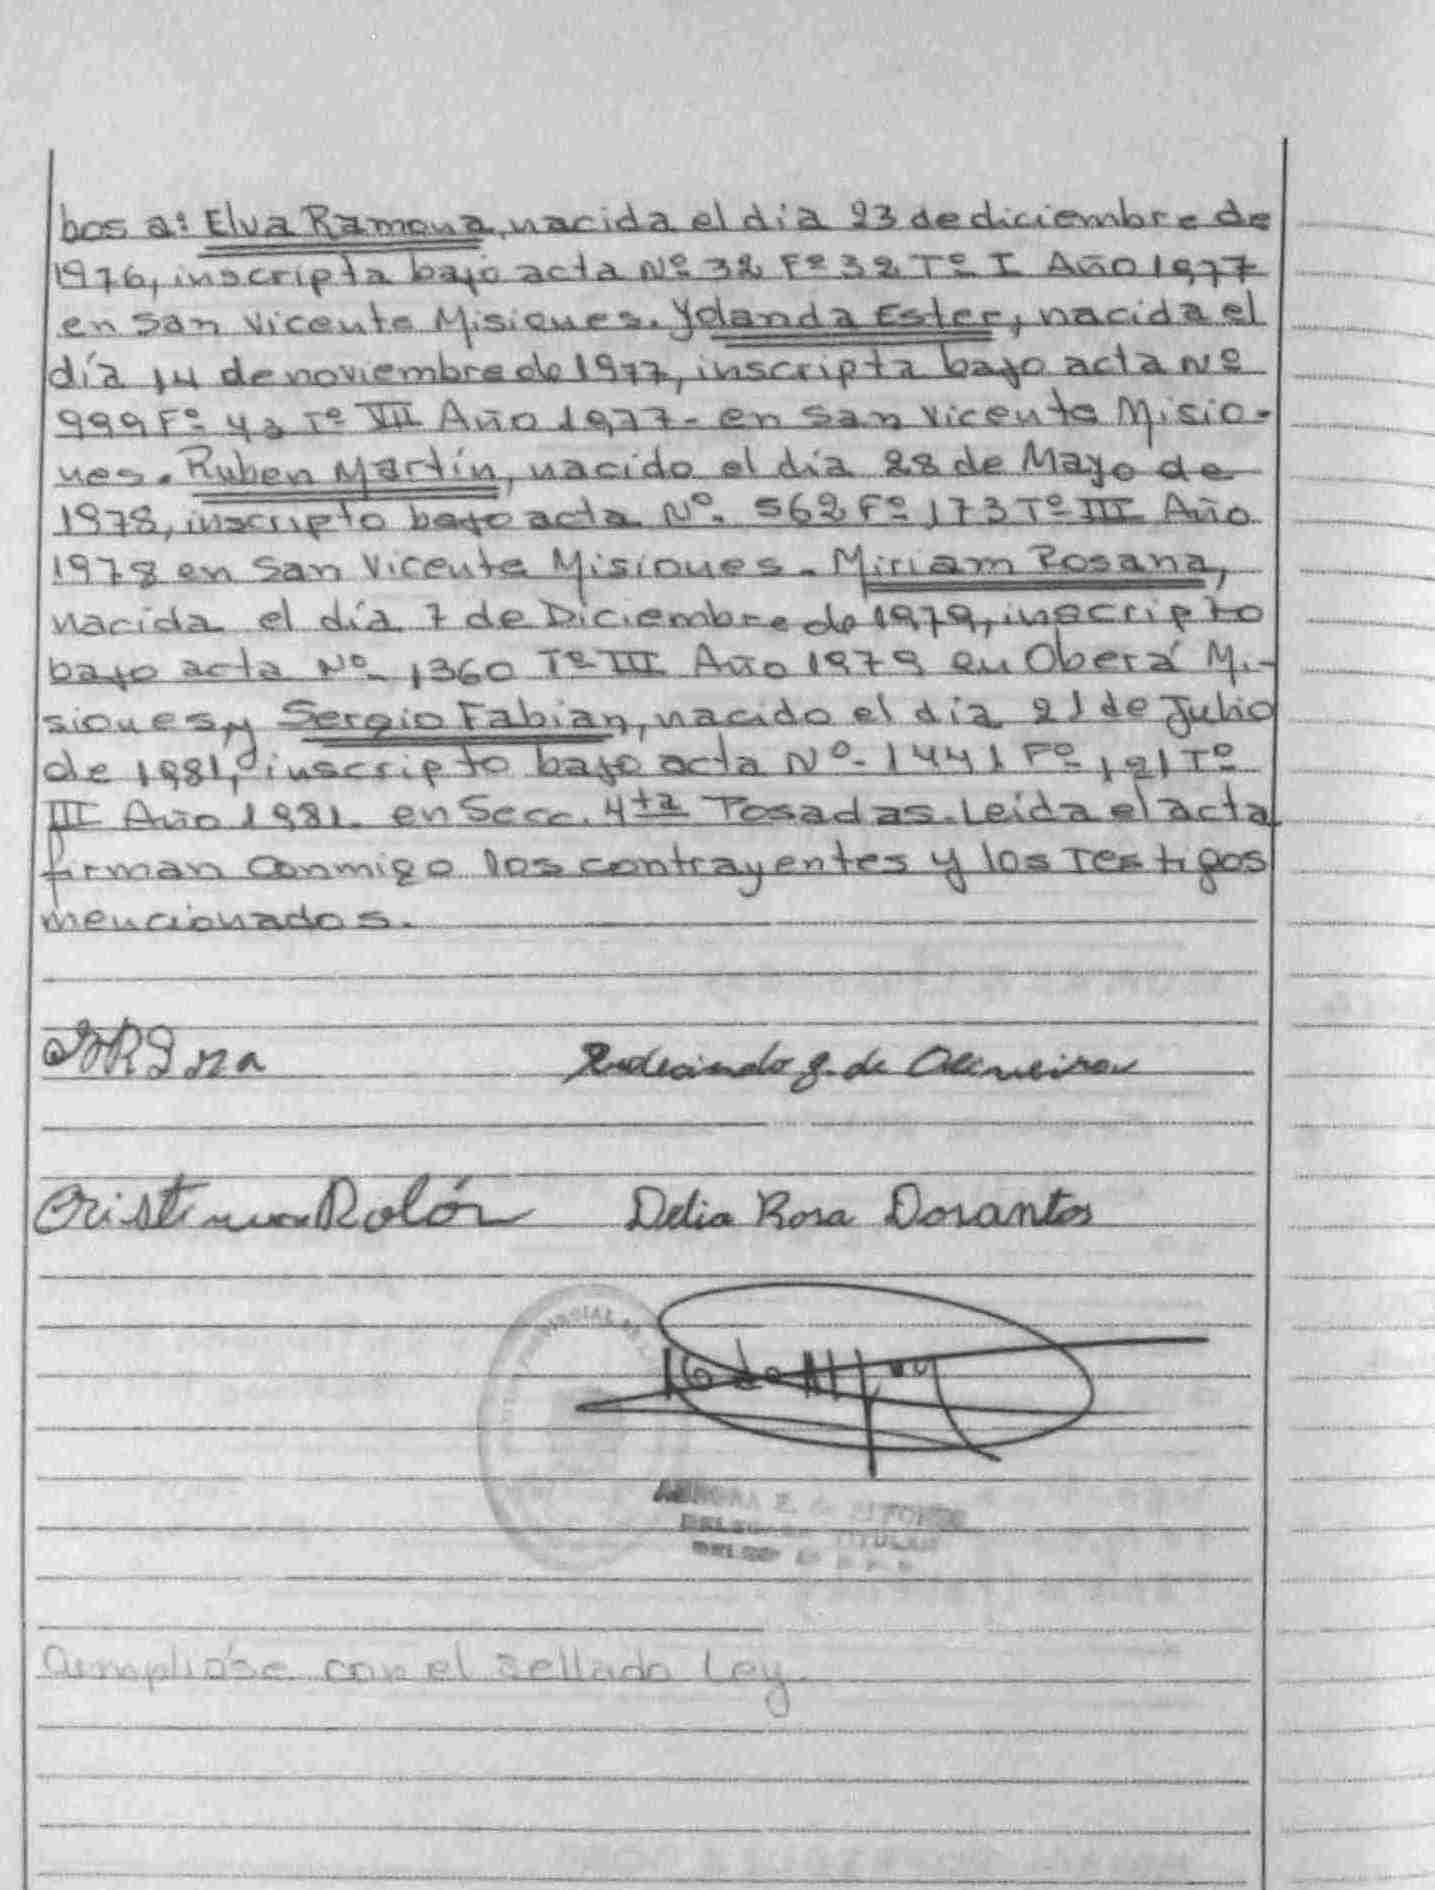 bos a: Elva Ramona, nacida el día 23 de diciembre de
1976, inscripta bajo acta Nº 32 Fº 32 Tº I Año 1977
en San Vicente Misiones. Yolanda Ester, nacida el
día 14 de noviembre de 1977, inscripta bajo acta Nº
999 Fº 42 Tº VII Año 1977- en San Vicente Misio-
nes. Ruben Martín, nacido el día 28 de Mayo de
1978, inscripto bajo acta Nº. 562 Fº 173 Tº III Año
1978 en San Vicente Misiones. Miriam Rosana,
nacida el día 7 de Diciembre de 1979, inscripto
bajo acta Nº 1360 Tº III Año 1979 en Oberá Mi-
siones, y Sergio Fabian, nacido el día 21 de Julio
de 1981, inscripto bajo acta Nº. 1441 Fº 121 Tº
III Año 1981. en Secc. 4ta Posadas. Leída el acta
firman conmigo los contrayentes y los testigos
mencionados.
de
Cristina Rolón Delia Rosa Dosantos
PROVINCIAL
E. de
TITULAR
Ampliose con el sellado Ley.